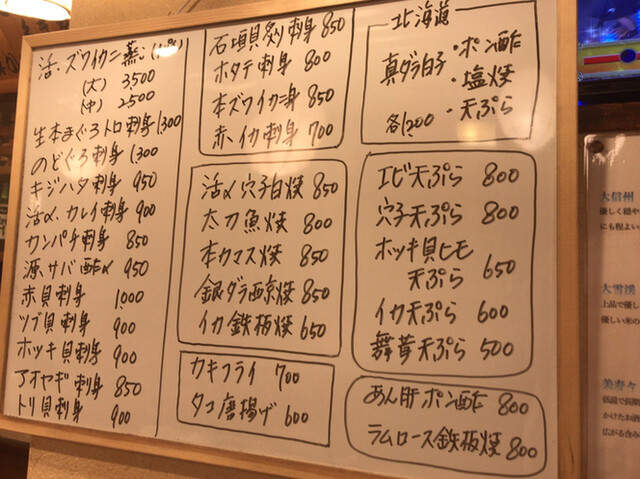 活・ズワイカニ蒸し
(大) 3,500
(中) 2500
生本まぐろトロ刺身 1,300
のどぐろ刺身 1,300
キジハタ刺身 950
活〆カレイ刺身 900
カンパチ刺身 850
源サバ酢〆 950
赤貝刺身 1,000
ツブ貝刺身 900
ホッキ貝刺身 900
アオヤギ刺身 850
トリ貝刺身 900
石垣貝炙り刺身 850
ホタテ刺身 800
本ズワイカニ身 850
赤イカ刺身 700
活〆穴子白焼 850
太刀魚焼 800
本カマス焼 850
銀ダラ西京焼 850
イカ鉄板焼 650
カキフライ 700
タコ唐揚げ 600
北海道
真ダラ白子
・ポン酢
・塩焼
・天ぷら
各1,200
エビ天ぷら 800
穴子天ぷら 800
ホッキ貝ヒモ
天ぷら 650
イカ天ぷら 600
舞茸天ぷら 500
あん肝ポン酢 800
ラムロース鉄板焼 800
大信州
優しく穏や
にも程よい
大雪渓
上品で優し
優しい米の
美寿々
低温で長期
かけたお酒
広がる含み